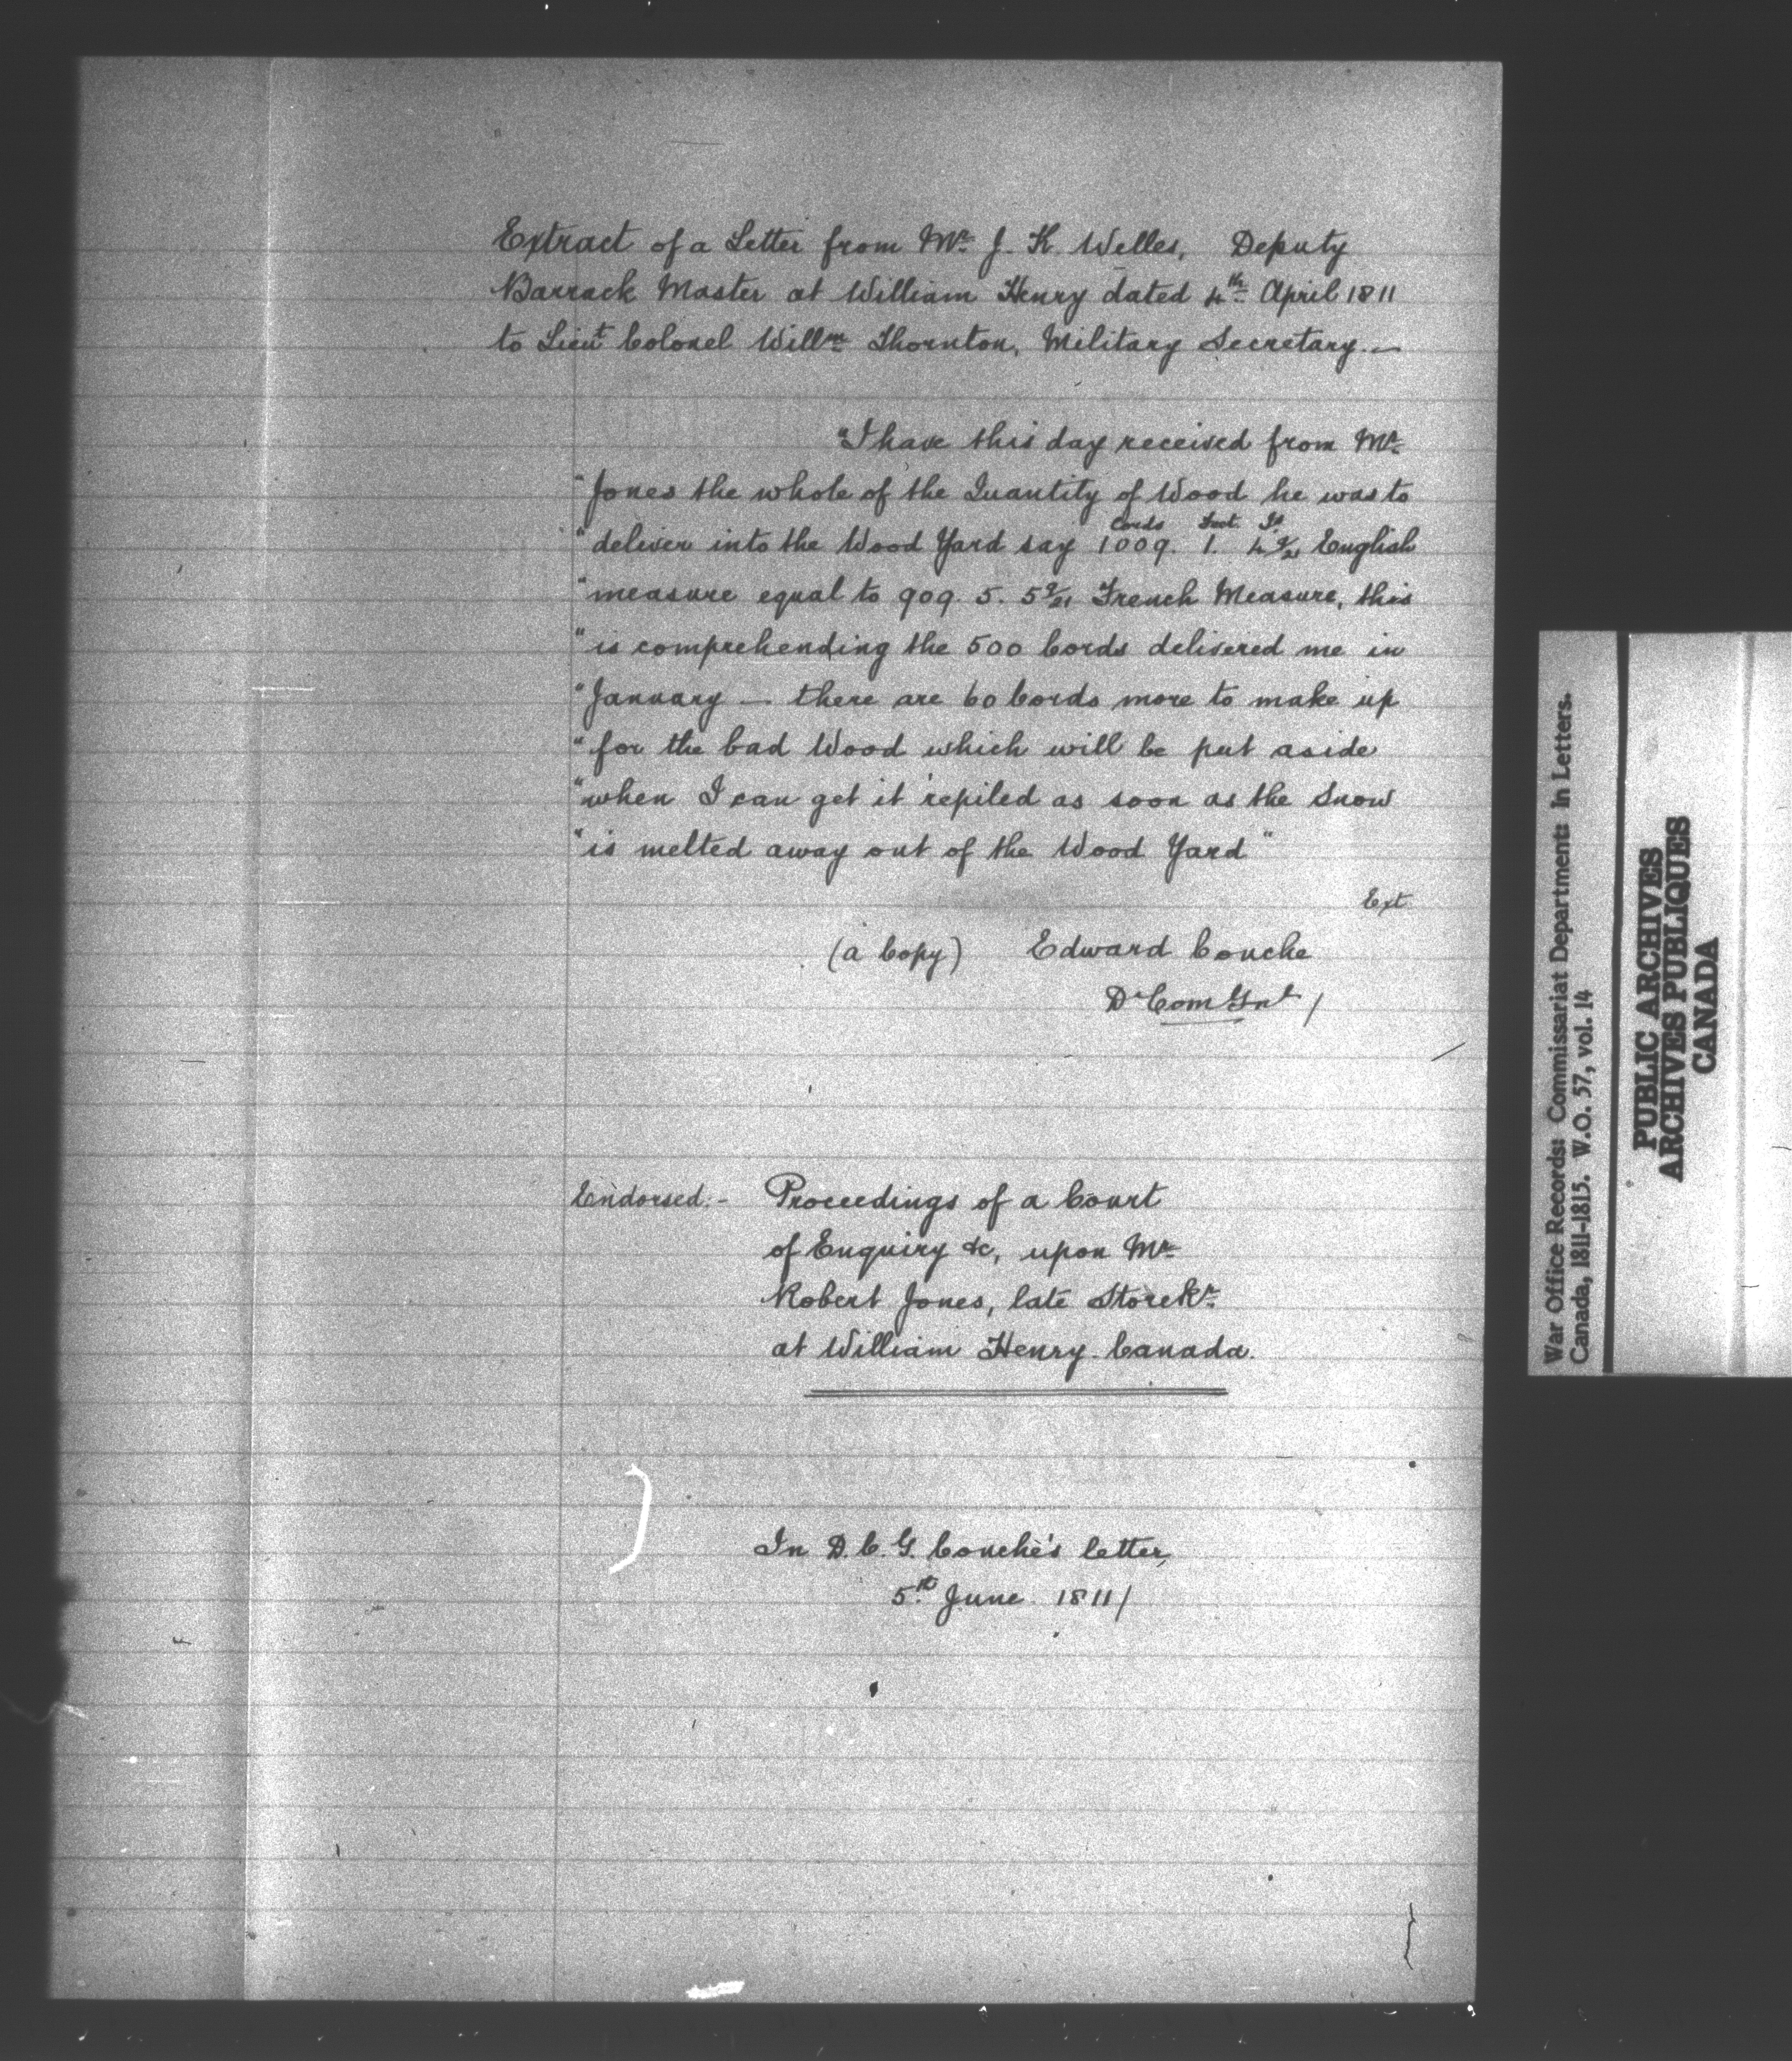 Extract of a Letter from Mr. J. K. Welles, Deputy
Barrack Master at William Henry dated 4th April 1811
to Lieut Colonel Willm Thornton, Military Secretary.—
"I have this day received from Mr.
"Jones the whole of the Quantity of Wood he was to
Cords Feet In
"deliver into the Wood Yard say 1009. 1. 4 9/21 English
"measure equal to 909. 5. 5 9/21 French Measure, this
"is comprehending the 500 Cords delivered me in
"January — there are 60 Cords more to make up
"for the bad Wood which will be put aside
"when I can get it repiled as soon as the Snow
"is melted away out of the Wood Yard"
Ext
(a Copy) Edward Couche
D Com Gnl /
Endorsed.- Proceedings of a Court
of Enquiry &c, upon Mr.
Robert Jones, late Storekr.
at William Henry. Canada.
In D. C. G. Couche's letter,
5th June 1811/
War Office Records: Commissariat Department: In Letters.
Canada, 1811-1815. W.O. 57, vol. 14
PUBLIC ARCHIVES
ARCHIVES PUBLIQUES
CANADA